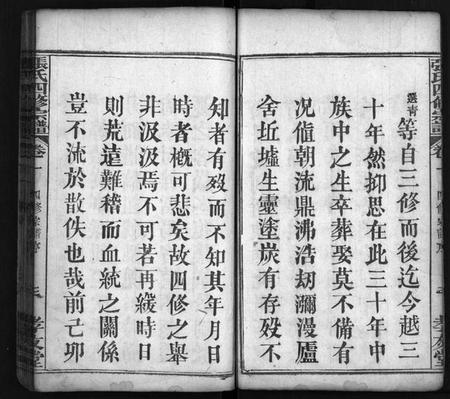 張氏四修宗譜 卷一 四修宗譜序
選青等自三修而後迄今越三
十年然抑思在此三十年中
族中之生卒葬娶莫不備有
况値朝流鼎沸浩劫瀰漫廬
舍坵墟生靈塗炭有存歿不
知者有歿而不知其年月日
時者槪可悲矣故四修之舉
非汲汲焉不可若再緩時日
則荒遠難稽而血統之關係
豈不流於散佚也哉前己卯
張氏四修宗譜 卷一 四修宗譜序
孝友堂